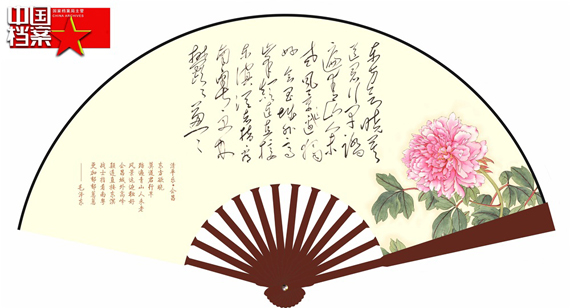 中国
档案
国家档案局主管
CHINA ARCHIVES
东方欲晓莫
道君行早踏
遍青山人未
老风景这边独
好会昌城外高
峰颠连直接
东溟战士指看
南粤更加
郁郁葱葱
清平乐·会昌
东方欲晓
莫道君行早
踏遍青山人未老
风景这边独好
会昌城外高峰
颠连直接东溟
战士指看南粤
更加郁郁葱葱
——毛泽东